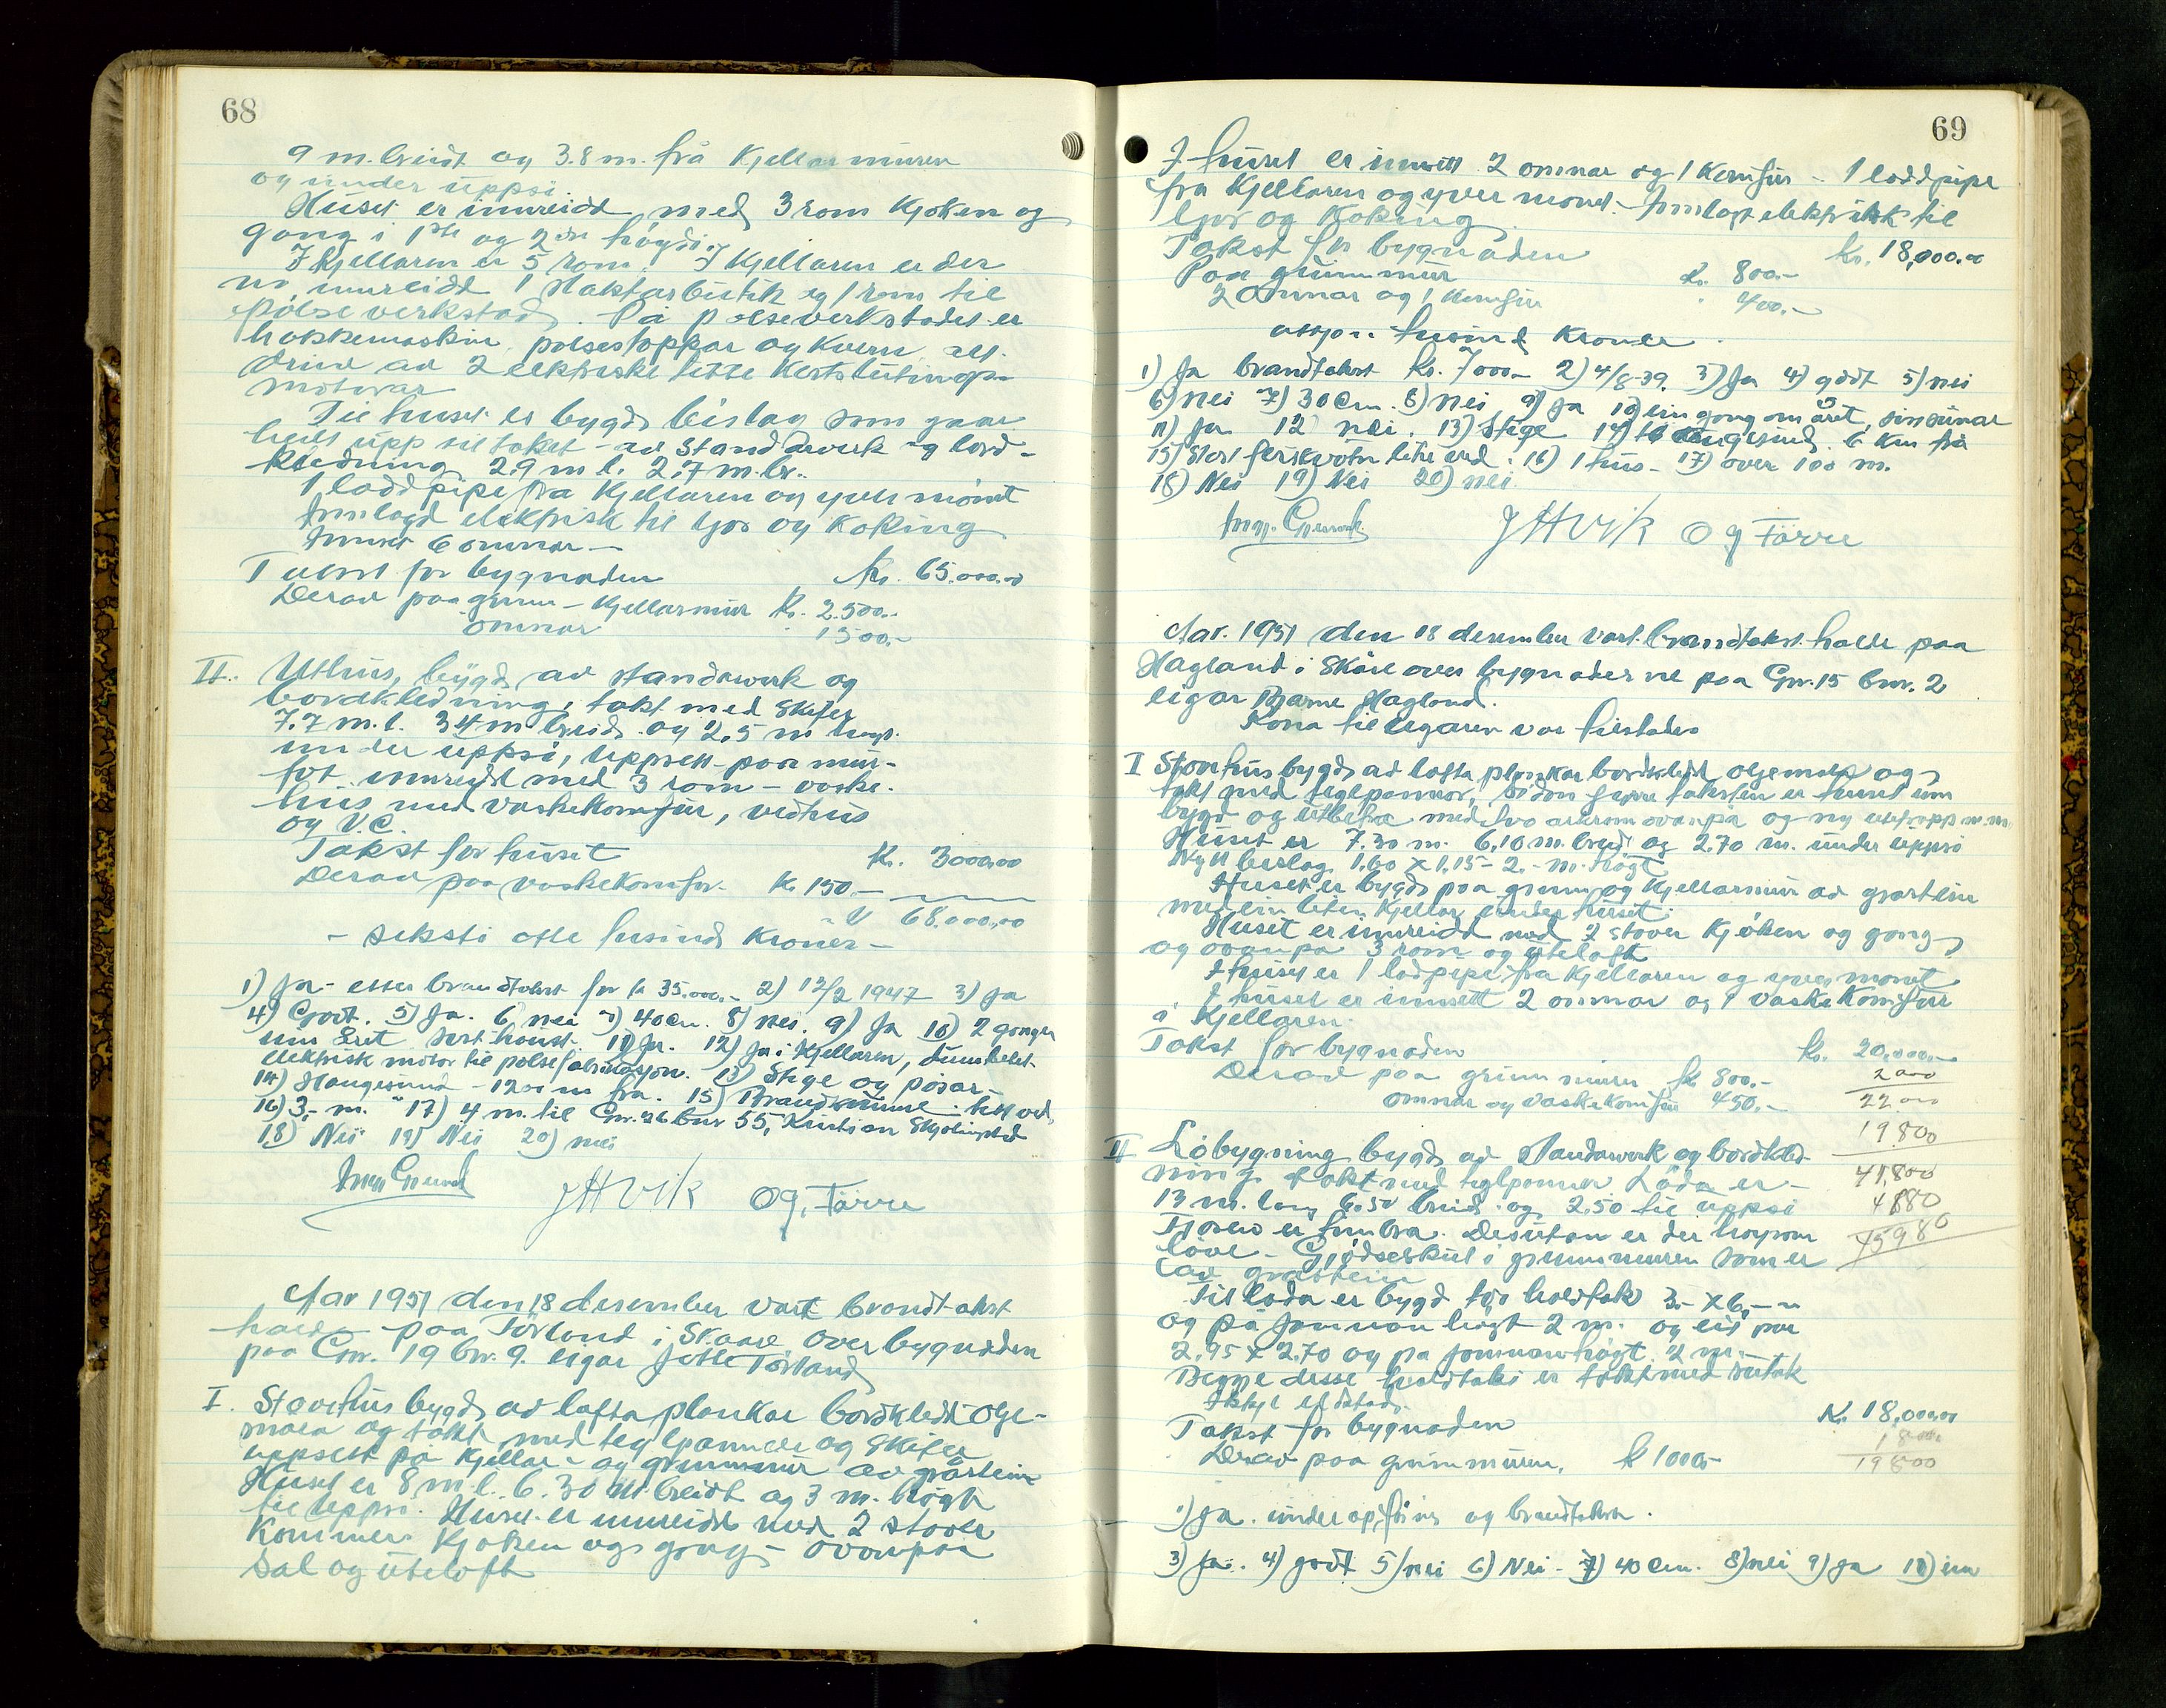 68
9 m. breidt og 3.8 m. frå Kjellarmuren
og under uppsi.
Huset er innreidd med 3 rom Kjøken og
gong i 1ste og 2dre høgdi.
I kjellaren er 5 rom. I Kjellaren er der
no innreidd 1 slaktarbutik og 1 rom til
pølseverkstad. På pølseverkstadet er
hakkemaskin, pølsestoppar og Kvern alt
drive av 2 elektriske lette Kortslutnings
motorar
Til huset er bygd bislag som gaar
heilt upp til taket - av Standarverk og bord-
kledning 2.9 m l. 2.7 m. br.
1 lodd pipe fra Kjellaren og yver mønet
Innlagd elektrisk til ljos og Koking
Innset 6 omnar -
Takst for bygnaden Kr. 65.000.00
Derav paa grunn - Kjellarmur Kr. 2.500.-
omnar " 1500.-
II. Uthus, bygd av standarverk og
bordkledning, takt med Skifer
7.7 m. l. 3.4 m breidt og 2.5 m høgt
under uppsi, uppsett paa mur-
fot innreidt med 3 rom - vaske-
hus med vaskekomfur, vedhus
og V.C.
Takst for huset Kr. 3000,00
Derav paa vaskekomfur Kr. 150.-
68.000,00
- seksti otte tusind Kroner -
1) Ja - etter brandtakst for kr 35.000.- 2) 12/2 1947 3) Ja
4) Godt. 5) Ja. 6 nei 7) 40 cm. 8) nei. 9) Ja 10) 2 gonger
um året vert houst. 11) Ja. 12) Ja i Kjellaren,
elektrisk motor til pølsefabrikasjon. 13) Stige og pøsar -
14) Haugesund - 1200 m fra. 15)
16) 3,- m. " 17) 4 m. til Gnr. 26 bnr 55, Kristian
18) Nei 19) Nei 20) nei
JH Vik Og. Førre
Aar 1951 den 18 desember vart brandtakst
halde paa Førland i Skaare over bygnaden
paa Gnr. 19 bnr. 9. eigar Førland
I. Stovehus bygd av lafta plankar bordkledt olje-
mala og takt med teglpannor og Skifer
uppsett på Kjellar- og grunnmur av gråstein
Huset er 8 m. l. 6.30 m. breidt og 3 m. høgt
til uppsi. Huset er innreidd med 2 stover
Kommers Kjøken og gong - ovanpaa
Sal og uteloft
69
I huset er innsett 2 omnar og 1 Komfur - 1 loddpipe
fra Kjellaren og yver monet. Innlagt elektrisk til
ljos og Koking.
Takst for bygnaden Kr. 18,000.00
Paa grunnmur Kr. 800.-
2 omnar og 1 Komfur " 400.-
atten tusind Kroner.
1) Ja brandtakst Kr. 7000.- 2) 4/8-39. 3) Ja 4) godt 5) nei
6) nei 7) 30 Cm. 8) nei 9) Ja 10) ein gong om året,
11) Ja 12 nei. 13) Stige 14) Haugesund 6 Km frå
15) Stort ferskvatn like ved. 16) 1 hus - 17) over 100 m.
18) Nei 19) Nei 20) nei.
JH Vik Og Førre
Aar. 1951 den 18 desember vart brandtakst halde paa
Hagland i Skåre over bygnaderne paa Gnr. 15 bnr. 2
eigar Bjarne Hagland.
Kona til eigaren var tilstades
I Stovehus bygd av lafta plankar bordkledd oljemala og
takt med teglpannor, sidan fyrre taksten er huset um
bygd og utbetra med tvo arkrom ovanpå og ny m.m.
Huset er 7.30 m. 6,10 m. breid og 2.70 m. under uppsi
Nytt bislag 1.60 x 1,15 - 2.- m. høgt
Huset er bygd paa grunn og Kjellarmur av gråstein
med ein liten Kjellar under huset.
Huset er innreidd med 2 stover Kjøken og gong
og ovanpa 3 rom og uteloft
I huset er 1 lodpipe fra Kjellaren og yver monet
I huset er innsett 2 omnar og 1 vaske Komfur
i Kjellaren.
Takst for bygnaden Kr. 20.000.-
Derav paa grunnmuren kr 800.- 2000
omnar og vaskekomfur 450.- 22000
19.800
II Løbygning bygd av standarverk og bordkled-
ning takt med teglpanner Løda er - 41,800
13 m. lang 6.50 breid og 2.50 til uppsi 4180
Fjosen er Desutan er der høyrom 45980
løve - Gjødselskul i grunnmuren som er
av gråstein
Til løda er bygd tvo halvtak 3,- x 6,-
og på jomnan høgt 2 m. og eit par
2.95 x 2.70 og pa jomnan høgt 2 m.
Begge desse halvtaki er takt med sutak
Ikkje eldstad.
Takst for bygnaden Kr. 18,000,00
1800
Derav paa grunnmuren. kr 1000.- 19800
1) Ja. under og brandtakst.
3) Ja. 4) godt 5) nei 6) Nei - 7) 40 Cm. 8) nei 9) Ja 10) ein